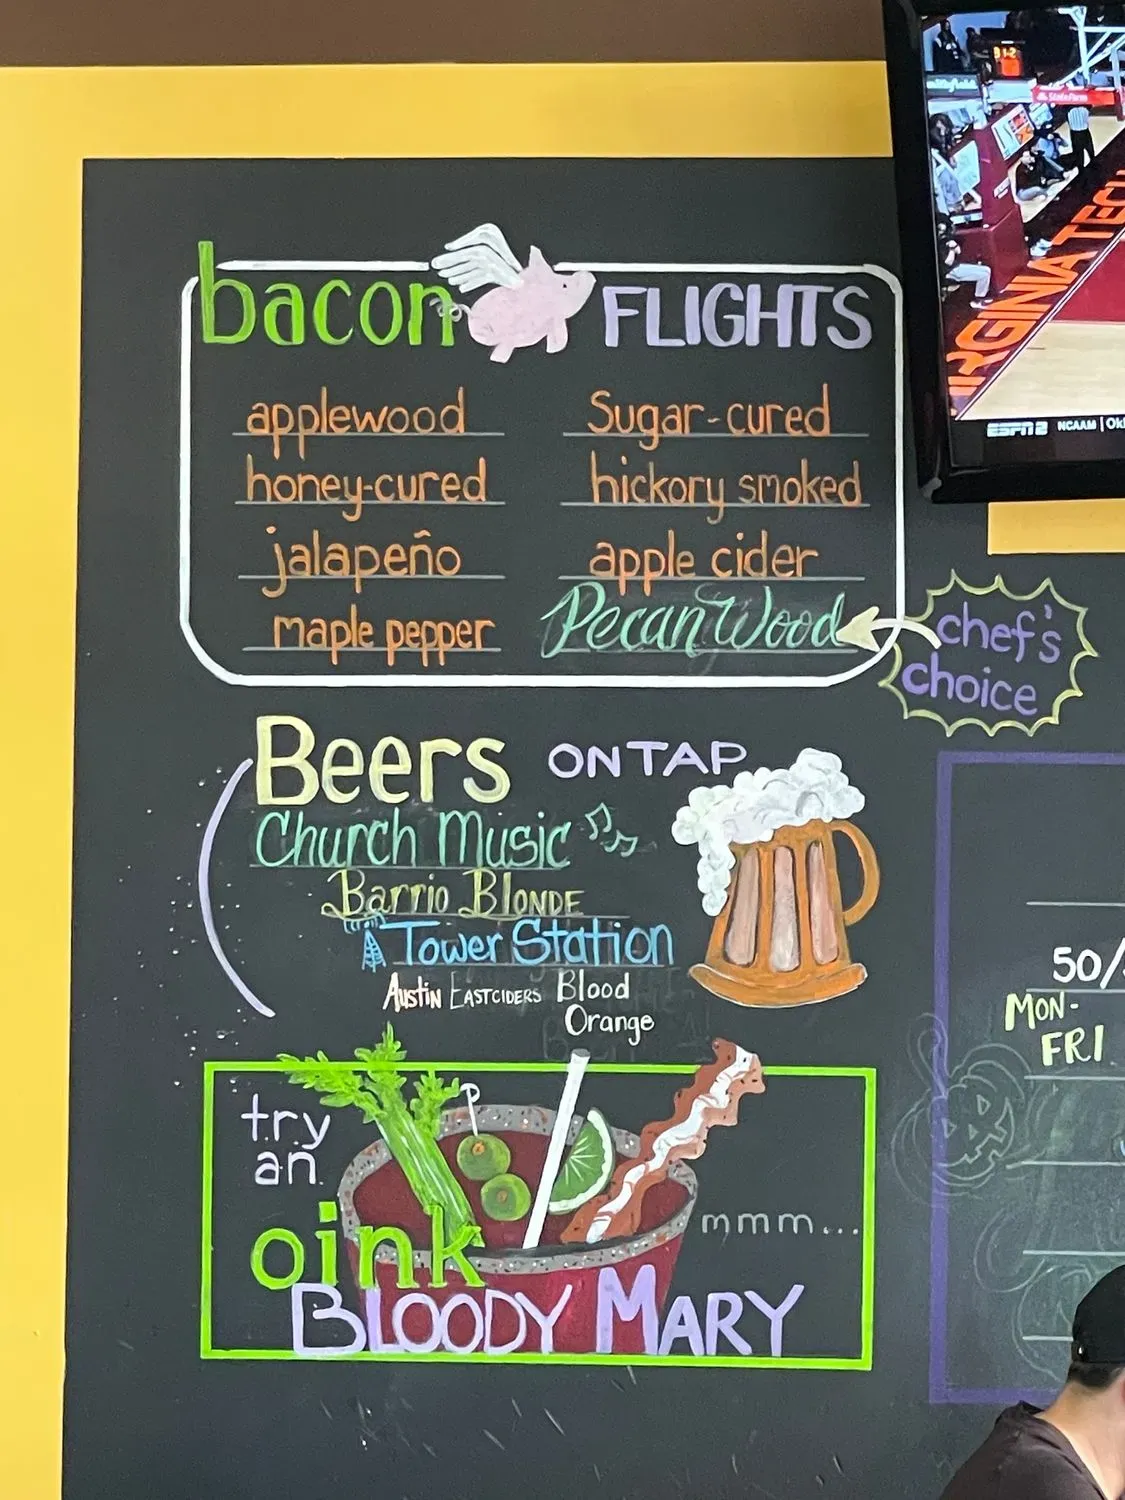 bacon FLIGHTS
applewood
Sugar-cured
honey-cured
hickory smoked
jalapeño
apple cider
maple pepper
Pecan Wood
chef's
choice
Beers ON TAP
Church Music
Barrio Blonde
Tower Station
Austin Eastciders Blood
Orange
try
an
oink
Bloody Mary
mmm...
50/
MON-
FRI
VIRGINIA TECH
StateFarm
ESPN2 NCAAM | Okl